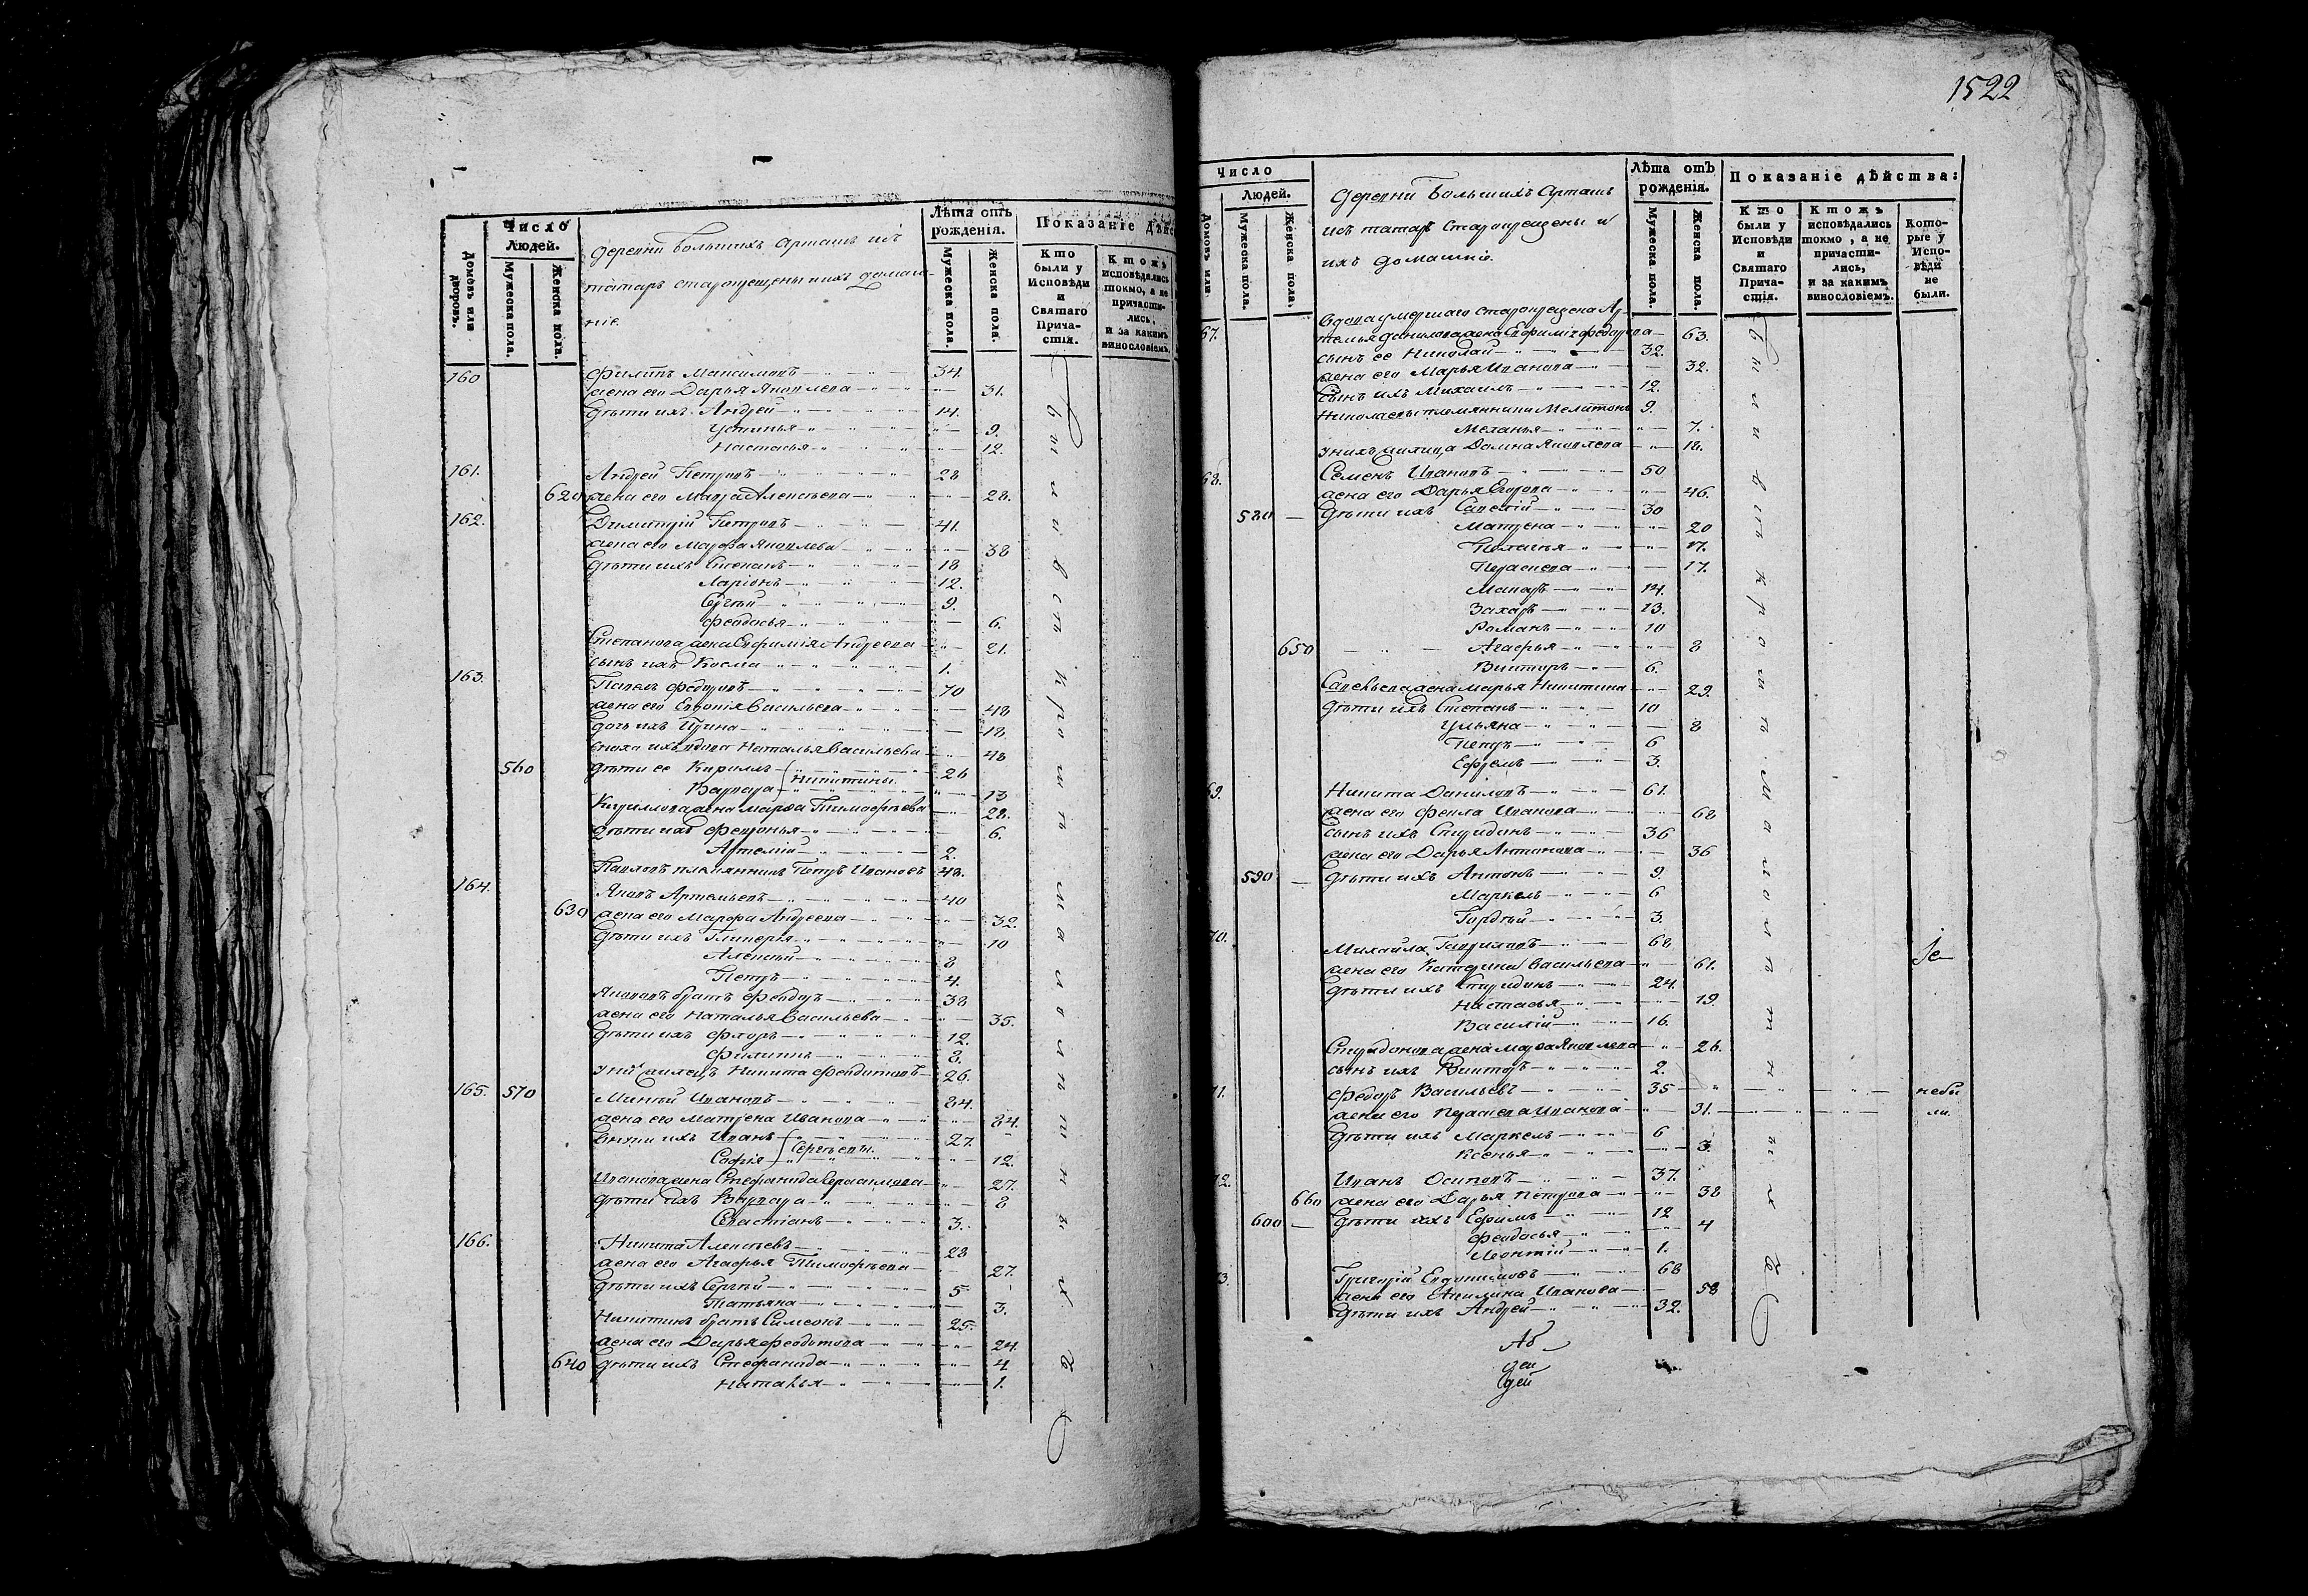 Домовъ или дворовъ.
Число
Людей.
Мужеска пола.
Женска пола.
деревни Большихъ Арташъ изъ
татаръ старокрещены и ихъ домаш-
ніе.
Лѣта отъ
рожденія.
Мужеска пола.
Женска пола.
Показаніе дѣйс
Кто
были у
Исповѣди
и
Святаго
Прича-
стія.
Ктожъ
исповѣдались
токмо, а не
причасти-
лись,
и за какимъ
винословіемъ.
160 Филипъ Максимовъ 34.
жена его Дарья Яковлева 31.
дѣти ихъ Андрей 14.
Устинья 9.
Настасья 12.
161. Андрей Петровъ 28
620 жена его Марѳа Алексѣева 28.
162. Димитрій Петровъ 41.
жена его Марѳа Яковлева 38
дѣти ихъ Степанъ 18
Ларіонъ 12.
Сергѣй 9.
Феодосья 6.
Степанова жена Евфимія Андреева 21.
сынъ ихъ Косма 1.
163. Павелъ Федоровъ 70
жена его Евдокія Васильева 48
дочь ихъ Ирина 18.
сноха ихъ вдова Наталья Васильева 48
560 дѣти ее Кирилъ 26
Никитины
Варвара 13
Кирилова жена Марѳа Тимофѣева 28.
дѣти ихъ Февронья 6.
Артемій 2.
Павловъ племянникъ Петръ Ивановъ 48.
164. Яковъ Артемьевъ 40
630 жена его Марфа Андреева 32.
дѣти ихъ Гликерія 10
Алексѣй 8
Петръ 4.
Яковъ братъ Феодоръ 38
жена его Наталья Васильева 35.
дѣти ихъ Флоръ 12.
Филиппъ 8.
Никита Феодотовъ 26.
165. 570 Михѣй Ивановъ 84.
жена его Матрена Иванова 84.
внуки ихъ Иванъ 27.
Сергѣевы.
Софія 12.
Иванова жена Стефанида Герасимова 27.
дѣти ихъ Варвара 8
Севастіанъ 3.
166. Никита Алексѣевъ 28
жена его Агафья Тимофѣева 27.
дѣти ихъ Сергѣй 5
Татьяна 3.
Никитинъ братъ Симеонъ 25.
жена его Дарья Феодотова 24.
640 дѣти ихъ Стефанида 4
Наталья 1.
1522
Домовъ или
Число
Людей.
Мужеска пола.
Женска пола.
деревни Большихъ Арташъ
изъ татаръ старокрещены и
ихъ домашніе.
Лѣта отъ
рожденія.
Мужеска пола.
Женска пола.
Показаніе дѣйства:
Кто
были у
Исповѣди
и
Святаго
Прича-
стія.
Ктожъ
исповѣдались
токмо, а не
причасти-
лись,
и за какимъ
винословіемъ.
Кото-
рые у
Испо-
вѣди
не
были.
67. вдова умершаго старокрещена Ар-
темья Данилова жена Евфимія Федорова 63.
сынъ ее Николай 32.
жена его Марья Иванова 32.
сынъ ихъ Михаилъ 12.
Николаевы племянники Мелитонъ 9.
Меланья 7.
у нихъ жилица Домна Яковлева 18.
68. Семенъ Ивановъ 50
жена его Дарья Егорова 46.
580 дѣти ихъ Савелій 30
Матрена 20
Пелагея 17.
Парасева 17.
Макаръ 14.
Захаръ 13.
Романъ 10
650 Агафья 8
Викторъ 6.
Савельева жена Марья Никитина 29.
дѣти ихъ Степанъ 10
Ульяна 8
Петръ 6
Ефремъ 3.
69. Никита Даниловъ 61.
жена его Фекла Иванова 68
сынъ ихъ Спиридонъ 36
жена его Дарья Антонова 36
590 дѣти ихъ Антонъ 9.
Маркелъ 6
Гордѣй 3.
70. Михайла Гавриловъ 68
жена его Катерина Васильева 61.
дѣти ихъ Спиридонъ 24.
Настасья 19
Василій 16.
Спиридонова жена Марѳа Яковлева 26.
сынъ ихъ Викторъ 2.
71. Федоръ Васильевъ 35 небы
жена его Парасева Иванова 31. ли.
дѣти ихъ Маркелъ 6
Ксенья 3.
72. Иванъ Осиповъ 37.
660 жена его Дарья Петрова 38
600 дѣти ихъ Ефимъ 12
Феодосья 4
Леонтій 1.
73. Григорій Евдокимовъ 68
жена его Акилина Иванова 58
дѣти ихъ Андрей 32.